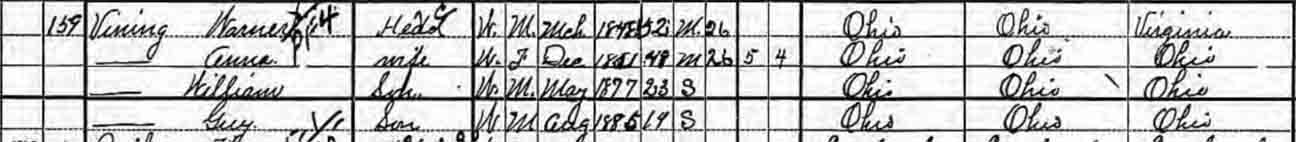 159 Vining Warner Head W. M. Mch 1848 52 M. 26 Ohio Ohio Virginia
—— Anna wife W. F Dec 1851 48 M 26 5 4 Ohio Ohio Ohio
—— William Son W. M. May 1877 23 S Ohio Ohio Ohio
—— Guy Son W M Aug 1885 14 S Ohio Ohio Ohio